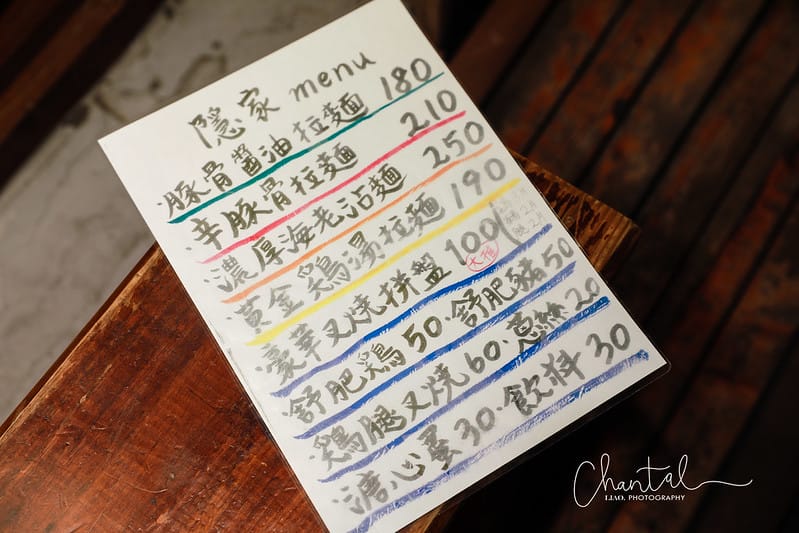 隱家 menu
豚骨醬油拉麵 180
辛豚骨拉麵 210
濃厚海老沾麵 250
黃金鶏湯拉麵 190
豪華叉燒拼盤 100
大福
舒肥鶏 50·舒肥豬 50
鶏腿叉燒 60·蔥絲 20
溏心蛋 30·飲料 30
Chantal
LIAO. PHOTOGRAPHY